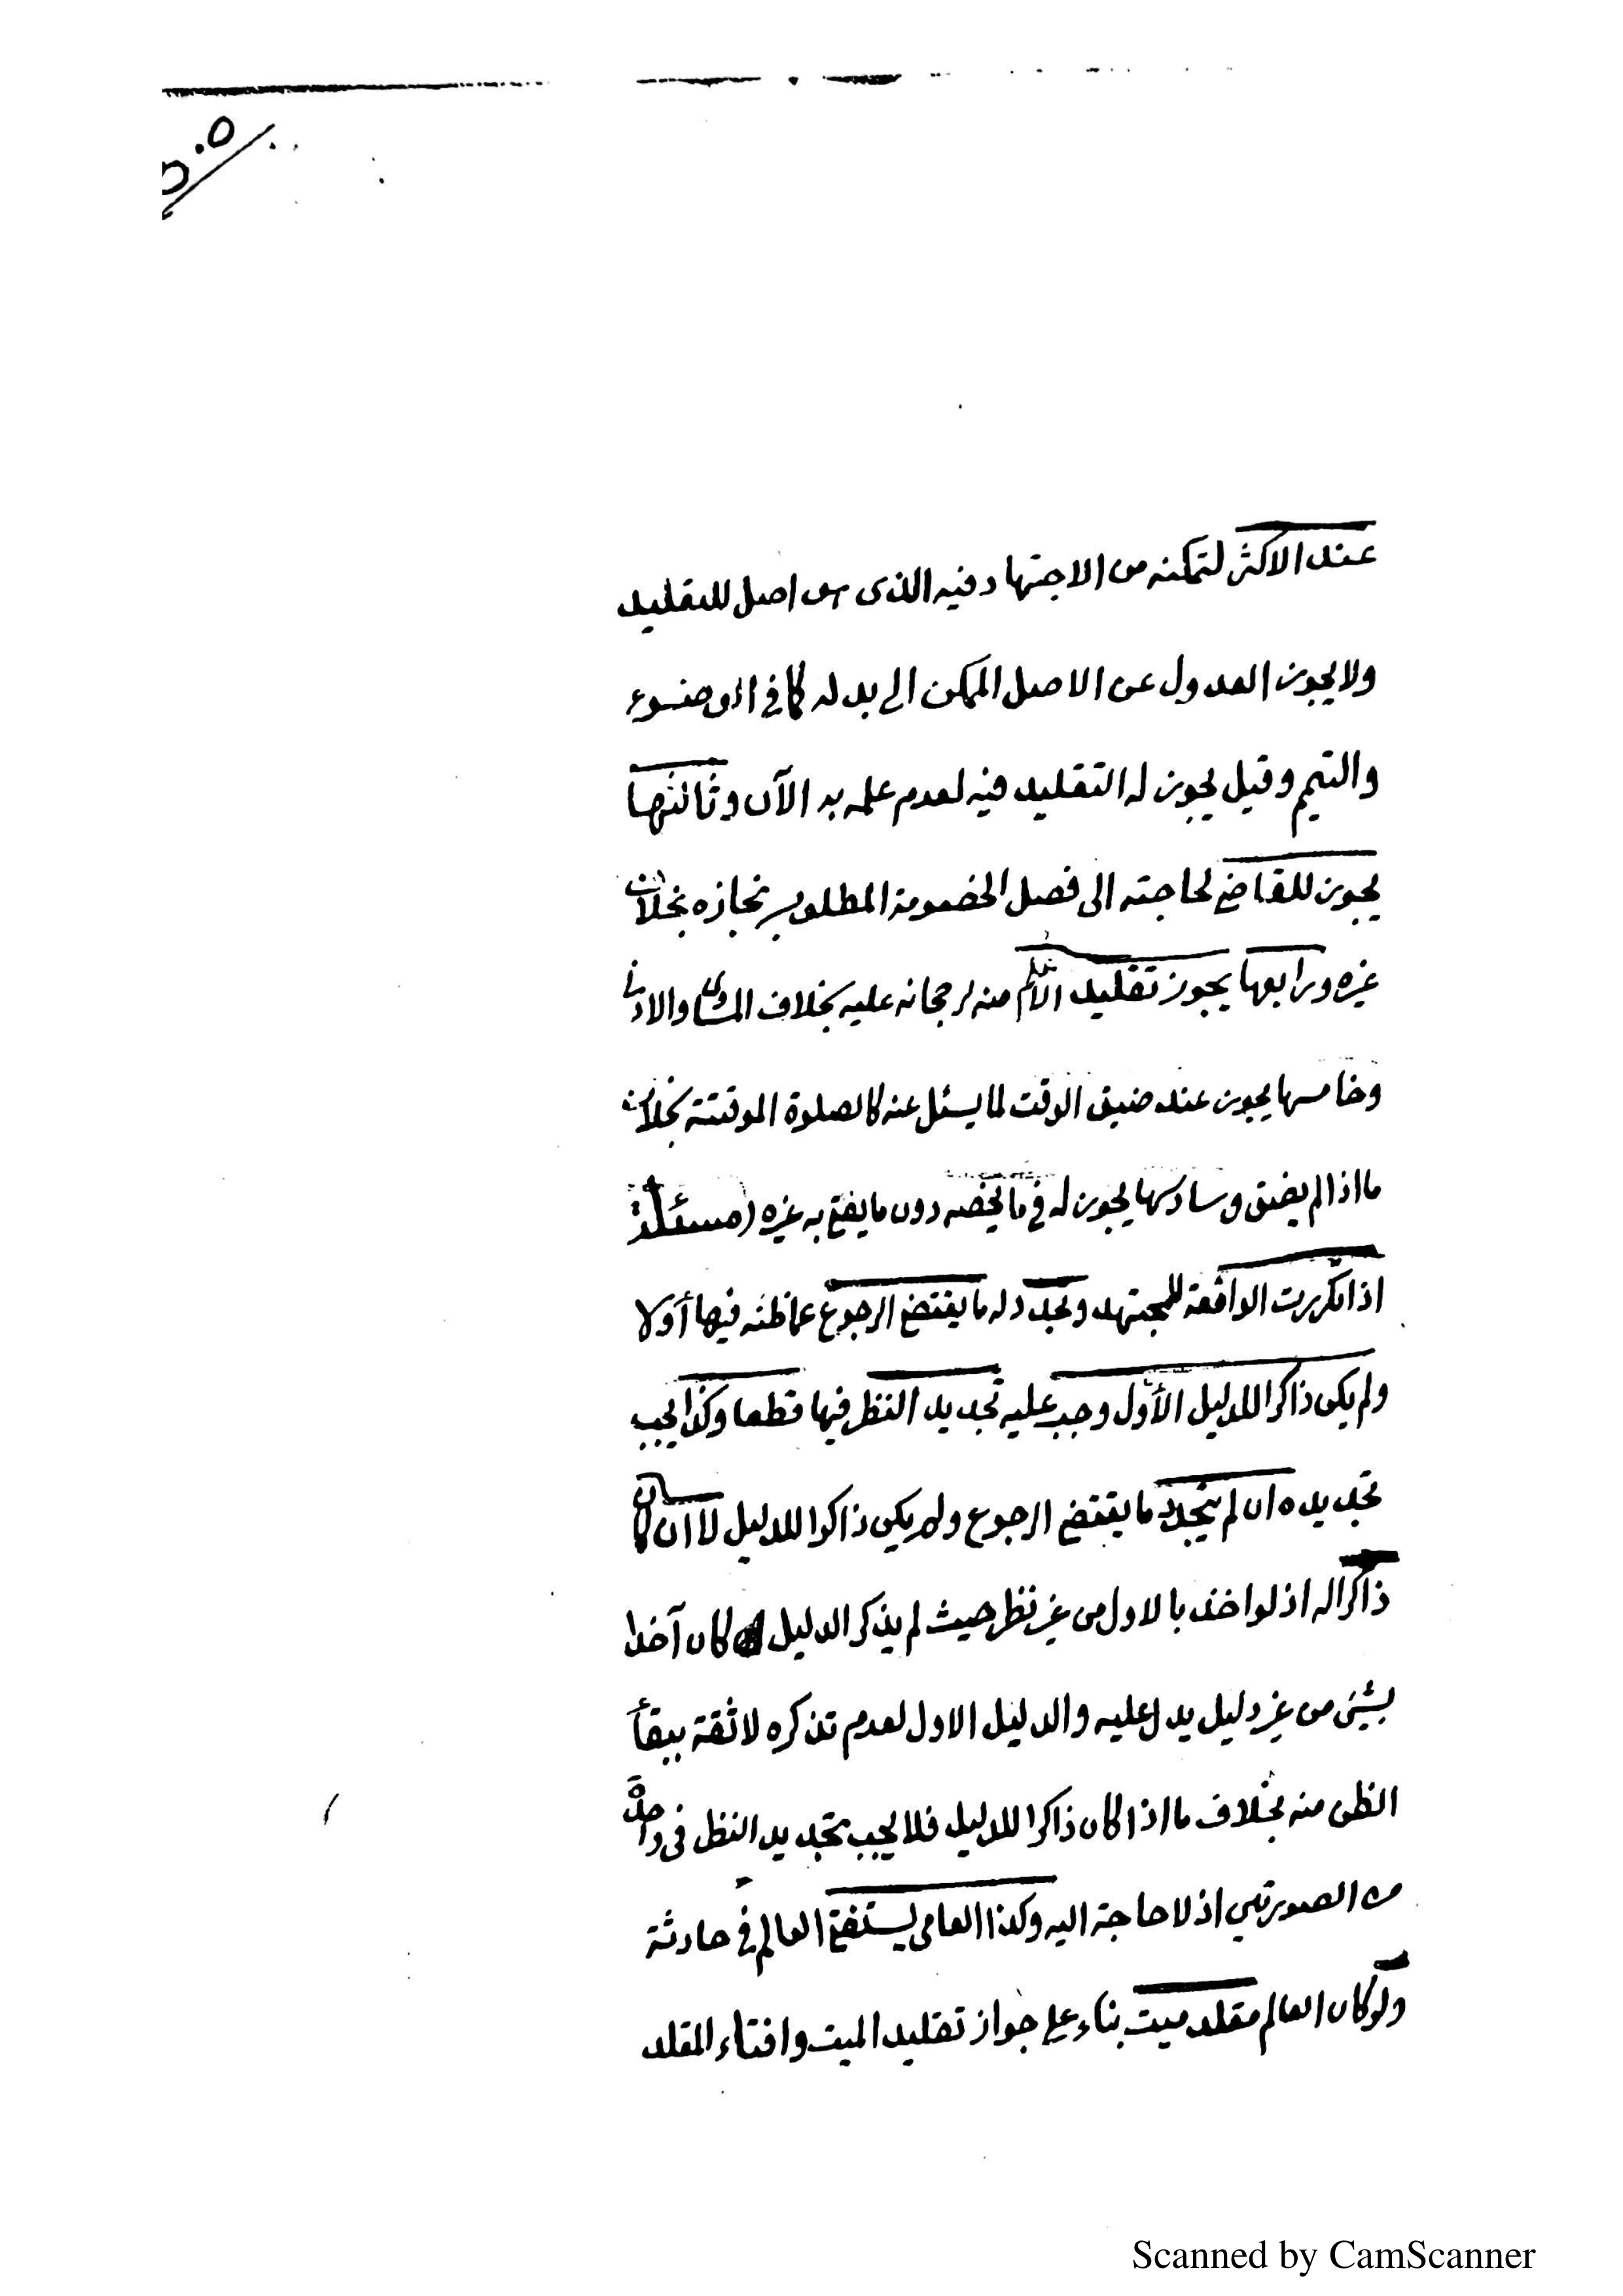 عند الاكثر لتمكنه من الاجتهاد فيه الذى هو اصل للتقليد
ولا يجوز العدول عن الاصل الممكن الى بدله كما فى الوضوء
والتيمم وقيل يجوز له التقليد فيه لعدم علمه به الآن وثالثها
يجوز للقاضى لحاجته الى فصل الخصومة المطلوب نجازه بخلاف
غيره ورابعها يجوز تقليد الأعلم منه لرجحانه عليه بخلاف المساوى والادنى
وخامسها يجوز عند ضيق الوقت لما يسئل عنه كالصلوة الموقتة بخلاف
ما اذا لم يضق وسادسها يجوز له فى ما يخصه دون ما يفتى به غيره (مسئلة
اذا تكررت الواقعة للمجتهد وتجدد له ما يقتضى الرجوع عما ظنه فيها أولا
ولم يكن ذاكرا للدليل الأول وجب عليه تجديد النظر فيها قطعا وكذا يجب
تجديده ان لم يتجدد ما يقتضى الرجوع ولم يكن ذاكرا للدليل لا ان كان
ذاكرا له اذ لو اخذ بالاول من غير نظر حيث لم يذكر الدليل كان آخذا
بشئ من غير دليل يدل عليه والدليل الاول لعدم تذكره لا ثقة ببقأ
الظن منه بخلاف ما اذا كان ذاكرا للدليل فلا يجب تجديد النظر فى واحدة
من الصورتين اذ لا حاجة اليه وكذا العامى يستفتى العالم فى حادثة
ولو كان العالم مقلد ميت بناء على جواز تقليد الميت وافتاء المقلد
Scanned by CamScanner